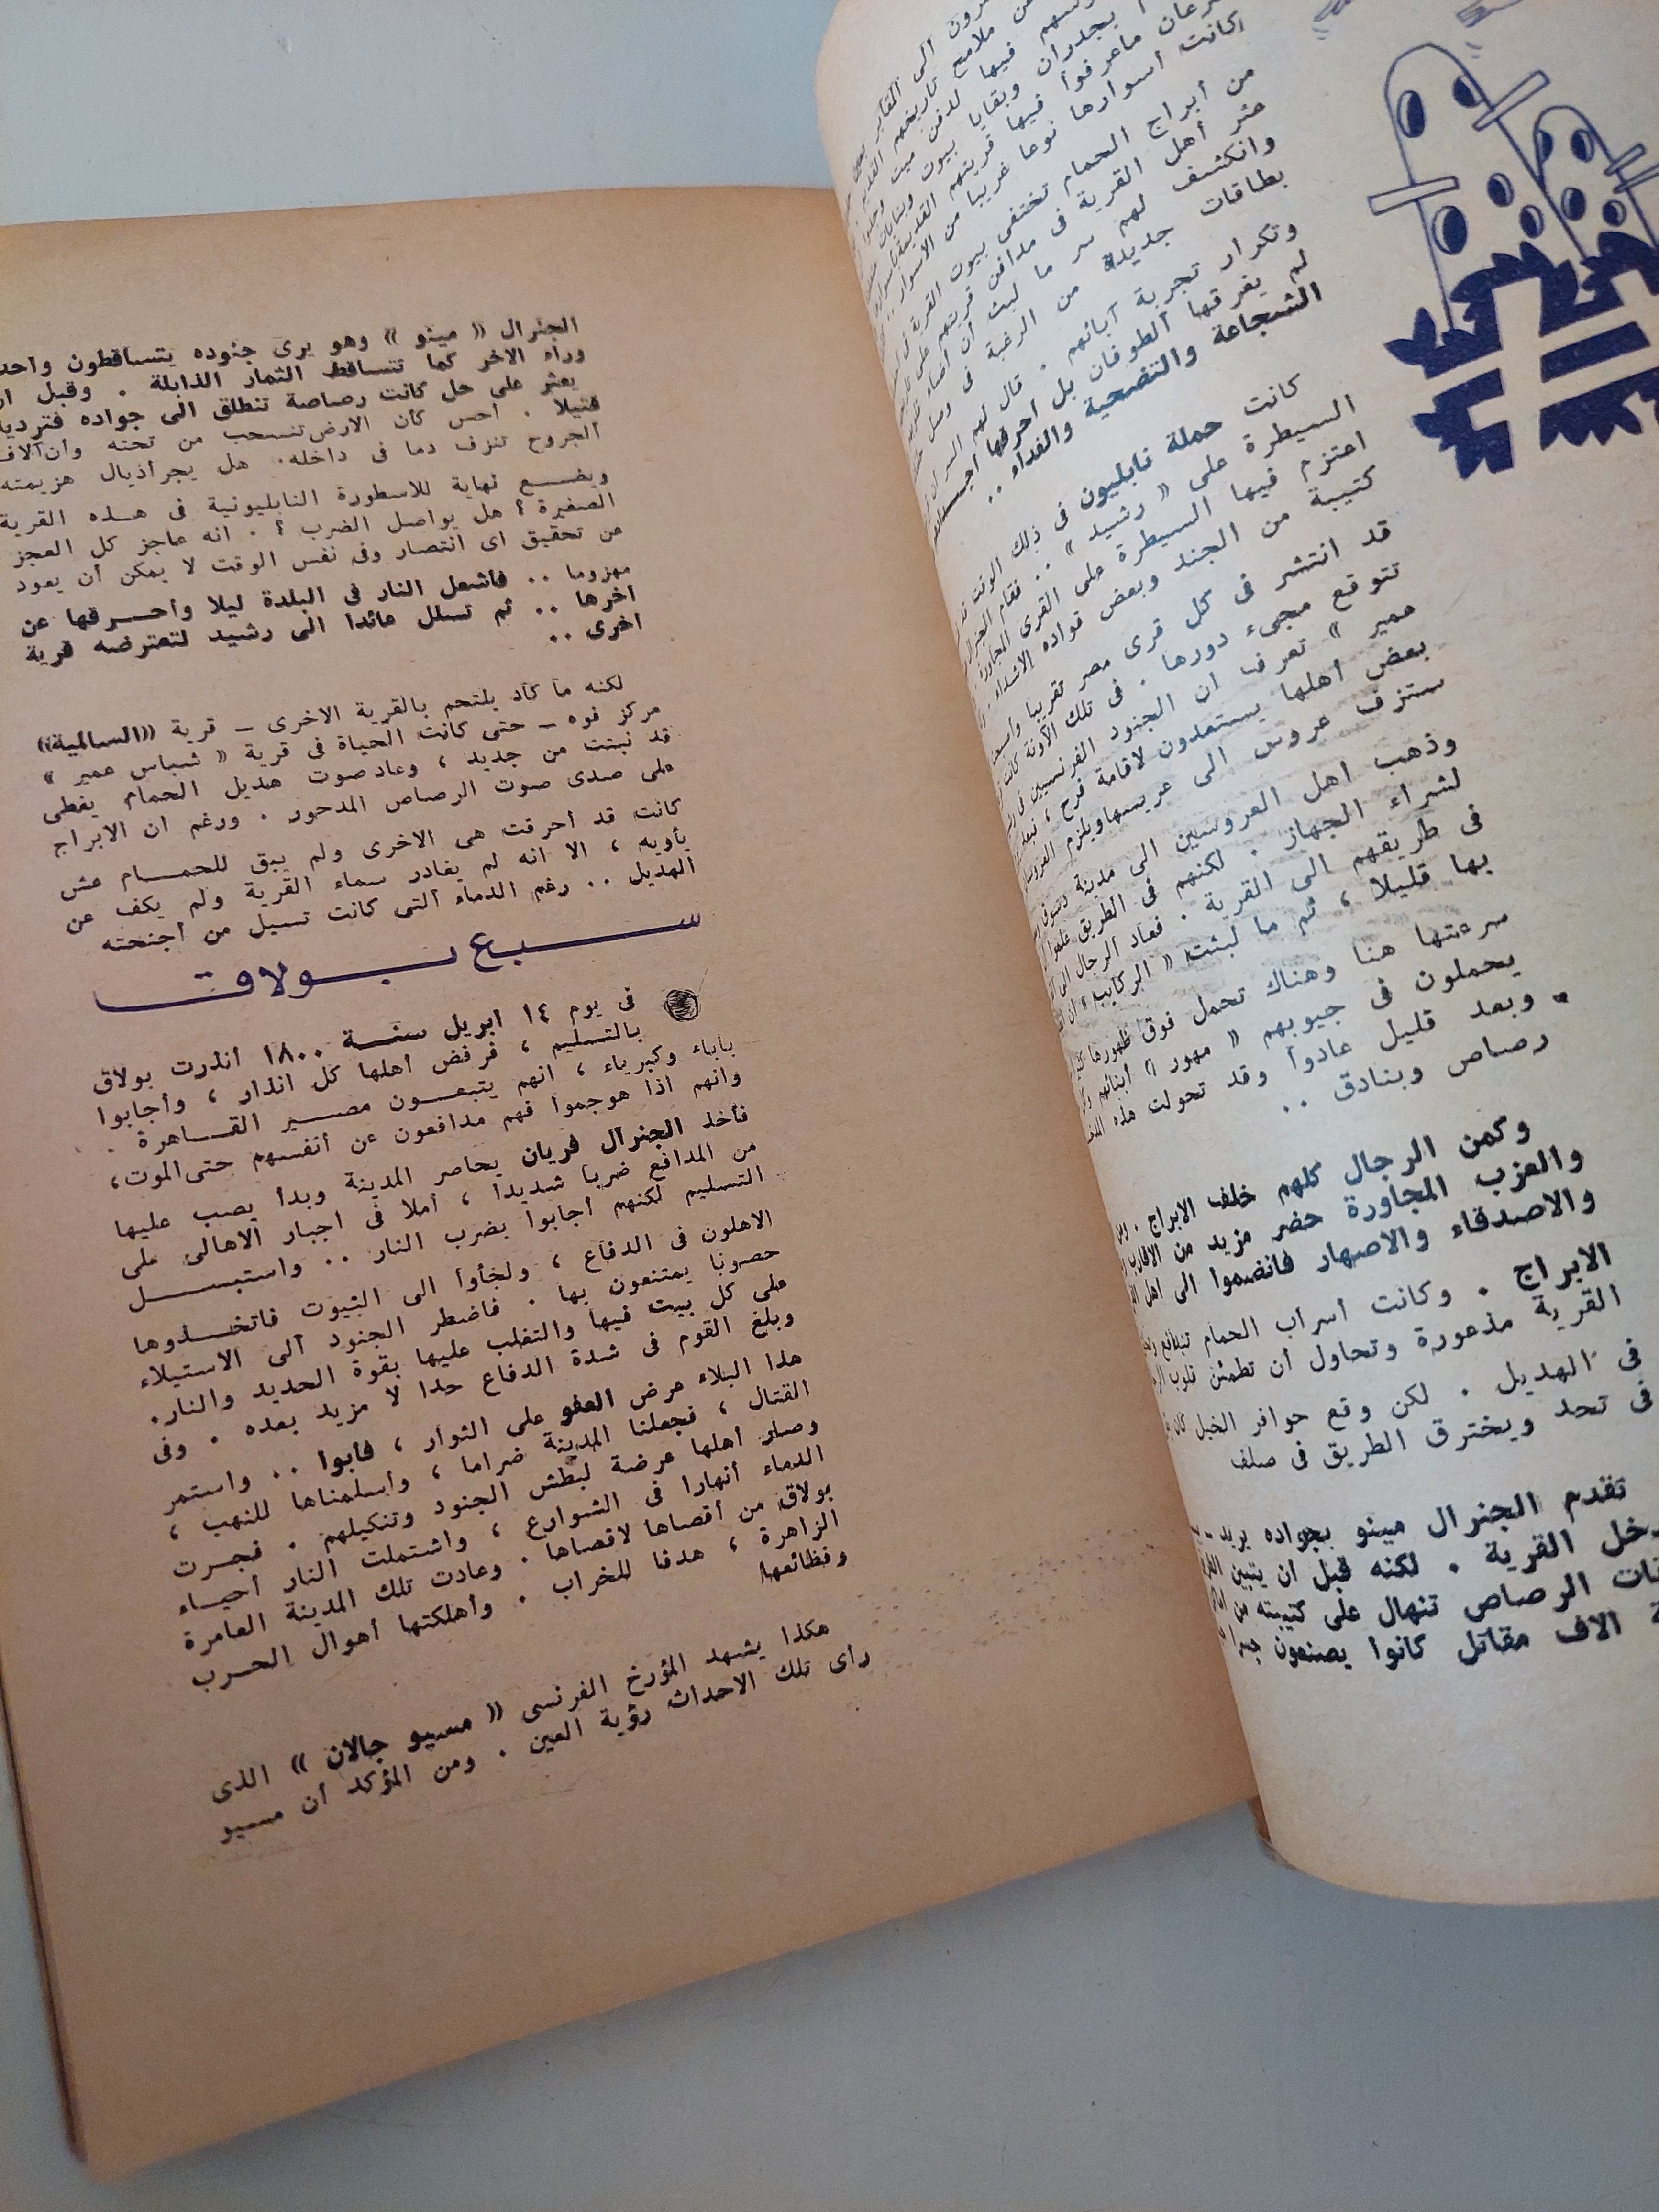 من أبراج الحمام تختفى بيوت القرية
عثر أهل القرية فى مدافن قريتهم على
وانكشف لهم سر ما لبث أن أضاء
بطاقات جديدة من الرغبة فى
وتكرار تجربة آبائهم . قال لهم السر ان
لم يغرقها الطوفان بل أحرقها
الشجاعة والتضحية والفداء ..
كانت حملة نابليون فى ذلك الوقت
السيطرة على « رشيد » .. فقام الجنرال
اعتزم فيها السيطرة على القرى المجاورة
كتيبة من الجند وبعض قواده الاشداء .
قد انتشر فى كل قرى مصر تقريبا
تتوقع مجىء دورها . فى تلك الآونة كانت
عمير » تعرف ان الجنود الفرنسيين فى
بعض أهلها يستعدون لاقامة فرح ،
ستزف عروس الى عريسها ويلزم
وذهب أهل العروسين الى مدينة دسوق
لشراء الجهاز . لكنهم فى الطريق علموا
فى طريقهم الى القرية . فعاد الرجال الى
بها قليلا ، ثم ما لبثت « الركايب » ان
سرعتها هنا وهناك تحمل فوق ظهورها
يحملون فى جيوبهم « مهور » أبنائهم
. وبعد قليل عادوا وقد تحولت هذه
رصاص وبنادق ..
وكمن الرجال كلهم خلف الابراج .
والعزب المجاورة حضر مزيد من الاقارب
والاصدقاء والاصهار فانضموا الى أهل
الابراج . وكانت أسراب الحمام
القرية مذعورة وتحاول أن تطمئن قلوب
فى الهديل . لكن وقع حوافر الخيل كان
فى تحد ويخترق الطريق فى صلف
تقدم الجنرال مينو بجواده يريد
القرية . لكنه قبل ان يتبين
الرصاص تنهال على كتيبته من
الاف مقاتل كانوا يصنعون
الجنرال « مينو » وهو يرى جنوده يتساقطون
وراء الاخر كما تتساقط الثمار الذابلة . وقبل
يعثر على حل كانت رصاصة تنطلق الى جواده
قتيلا . أحس كأن الارض تنسحب من تحته
الجروح تنزف دما فى داخله . هل يجر أذيال هزيمته
ويضع نهاية للاسطورة النابليونية فى هذه القرية
الصغيرة ؟ هل يواصل الضرب ؟ . انه عاجز كل العجز
من تحقيق اى انتصار وفى نفس الوقت لا يمكن أن يعود
مهزوما .. فأشعل النار فى البلدة ليلا وأحرقها عن
آخرها .. ثم تسلل عائدا الى رشيد لتعترضه قرية
اخرى ..
لكنه ما كاد يلتحم بالقرية الاخرى – قرية «السالمية»
مركز فوه – حتى كانت الحياة فى قرية « شباس عمير »
قد نبتت من جديد ، وعاد صوت هديل الحمام يغطى
على صدى صوت الرصاص المدحور . ورغم ان الابراج
كانت قد أحرقت هى الاخرى ولم يبق للحمام عش
يأويه ، الا انه لم يغادر سماء القرية ولم يكف عن
الهديل .. رغم الدماء التى كانت تسيل من أجنحته
سبع بولاق
فى يوم ١٤ ابريل سنة ١٨٠٠ أنذرت بولاق
بالتسليم ، فرفض أهلها كل انذار ، وأجابوا
باباء وكبرياء ، انهم يتبعون مصير القاهرة .
وانهم اذا هوجموا فهم مدافعون عن أنفسهم حتى الموت،
فأخذ الجنرال فريان يحاصر المدينة وبدأ يصب عليها
من المدافع ضربا شديدا ، أملا فى اجبار الاهالى على
التسليم لكنهم أجابوا بضرب النار .. واستبسل
الاهلون فى الدفاع ، ولجأوا الى البيوت فاتخذوها
حصونا يمتنعون بها . فاضطر الجنود الى الاستيلاء
على كل بيت فيها والتغلب عليها بقوة الحديد والنار.
وبلغ القوم فى شدة الدفاع حدا لا مزيد بعده . وفى
هذا البلاء عرض العفو على الثوار ، فأبوا .. واستمر
القتال ، فجعلنا المدينة ضراما ، وأسلمناها للنهب ،
وصار أهلها عرضة لبطش الجنود وتنكيلهم . فجرت
الدماء أنهارا فى الشوارع ، واشتملت النار أحياء
بولاق من أقصاها لاقصاها . وعادت تلك المدينة العامرة
الزاهرة ، هدفا للخراب . وأهلكتها أهوال الحرب
وفظائعها
هكذا يشهد المؤرخ الفرنسى « مسيو جالان » الذى
رأى تلك الاحداث رؤية العين . ومن المؤكد أن مسيو